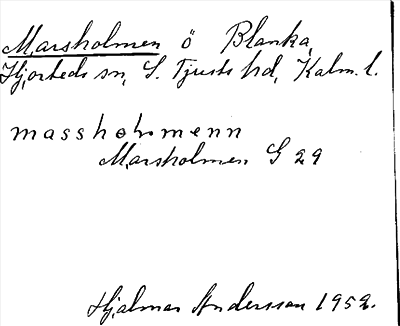 Marsholmen ö Blanka,
Hjorteds sn, S. Tjusts hd, Kalm. l.
massholmenn
Marsholmen G 29
Hjalmar Andersson 1952.